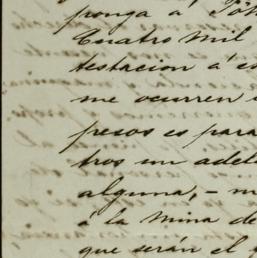 ponga a
Cuatro mil
testacion á
me ocurren
pesos es para
tros un adel
alguna, –
á la Mina de
que serán el